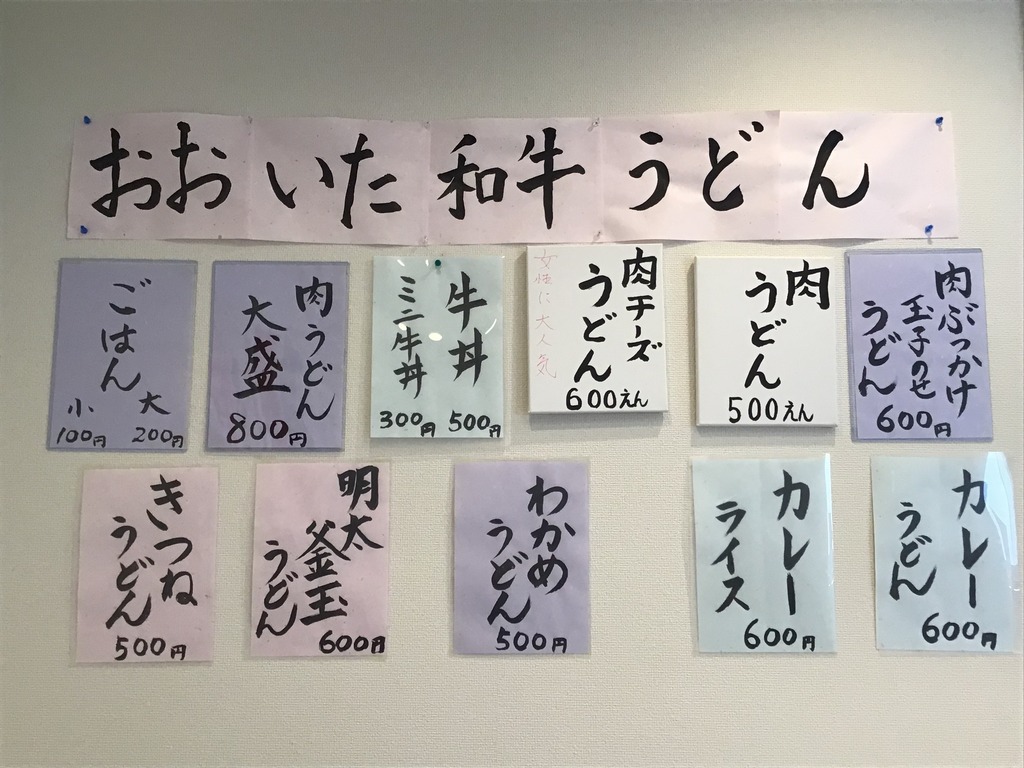 おおいた和牛うどん
肉ぶっかけ
玉子のせ
うどん
600円
肉
うどん
500えん
肉チーズ
うどん
女性に大人気
600えん
牛丼
500円
ミニ牛丼
300円
肉うどん
大盛
800円
ごはん
大
200円
小
100円
カレー
うどん
600円
カレー
ライス
600円
わかめ
うどん
500円
明太
釜玉
うどん
600円
きつね
うどん
500円